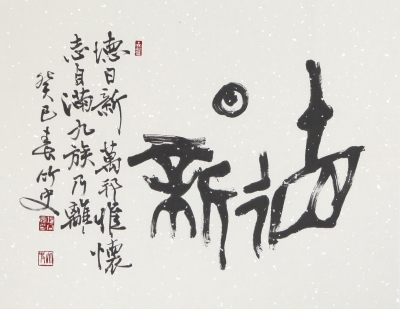 德日新
德日新 萬邦惟懷
志自滿九族乃離
癸巳春竹史